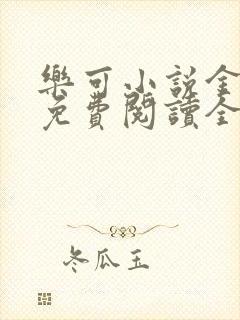 樂可小説全
免費閱讀全
冬瓜玉